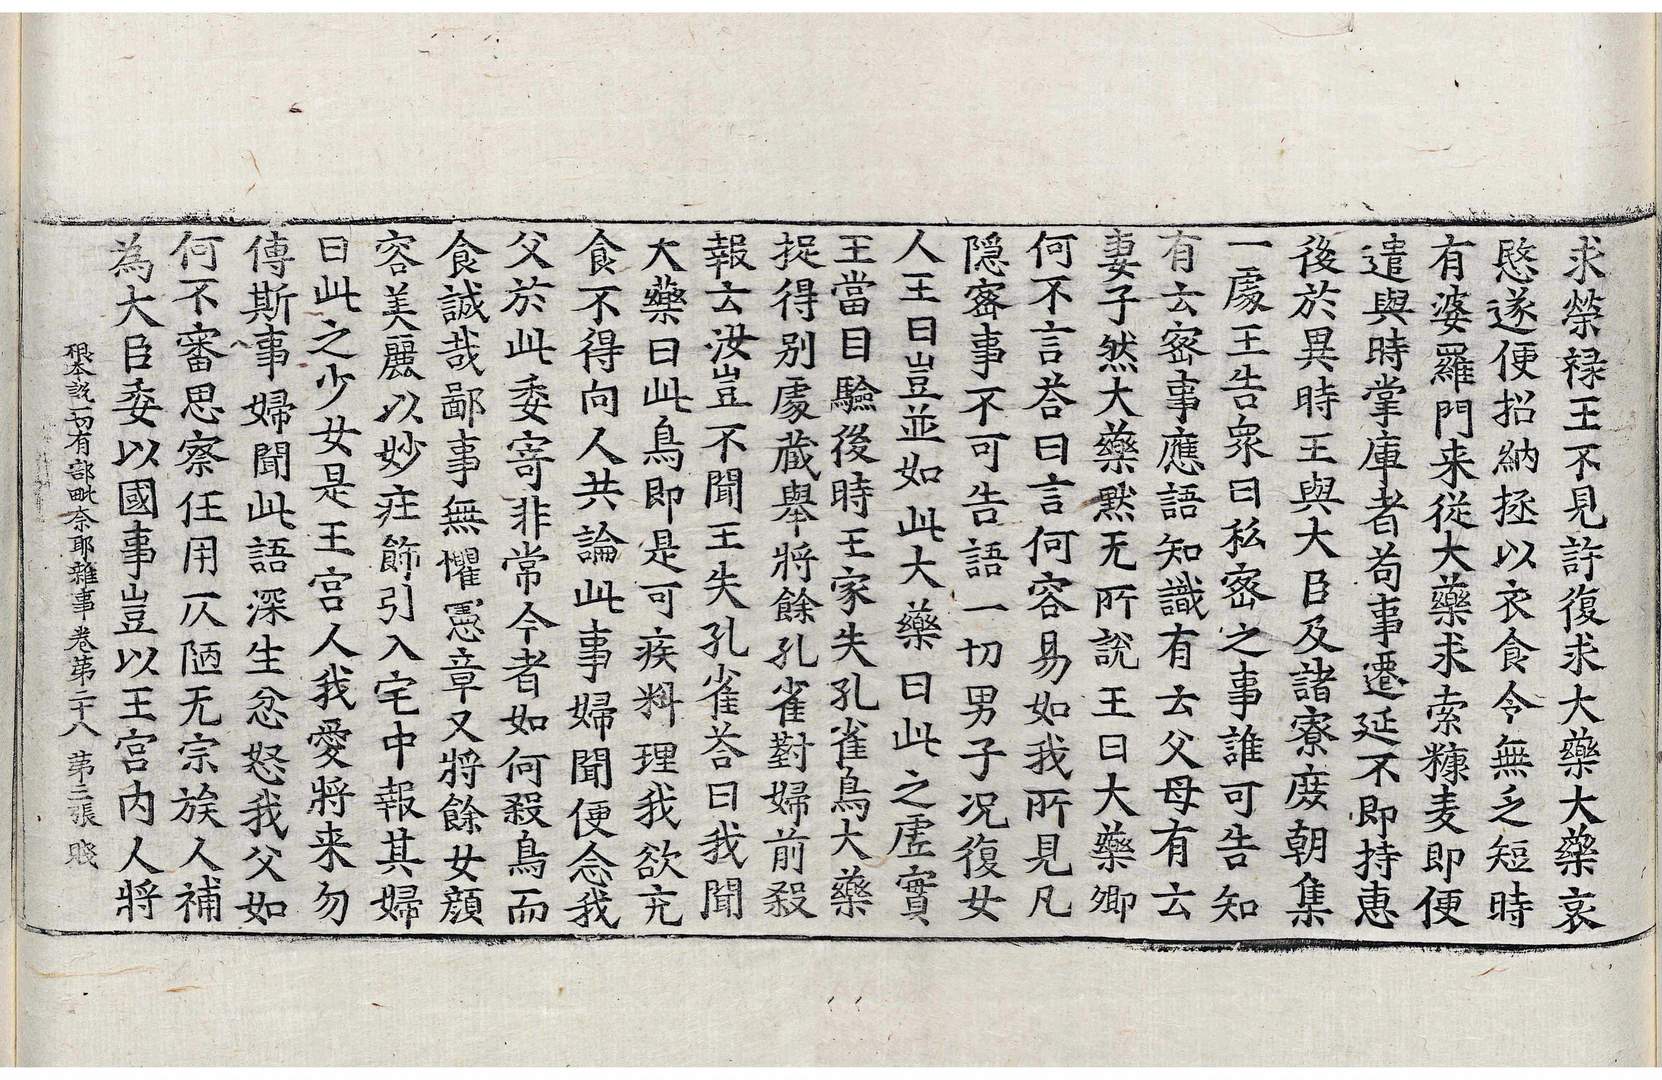 求榮禄王不見許復求大藥大藥哀
愍遂便招納拯以衣食令無乏短時
有婆羅門来從大藥求索糠麦即便
遣與時掌庫者苟事遷延不即持惠
後於異時王與大臣及諸寮庻朝集
一處王告衆曰私密之事誰可告知
有云密事應語知識有云父母有云
妻子然大藥黙无所説王曰大藥卿
何不言荅曰言何容易如我所見凡
隠密事不可告語一切男子况復女
人王曰豈並如此大藥曰此之虚實
王當目驗後時王家失孔雀鳥大藥
捉得别處蔵舉將餘孔雀對婦前殺
報云汝豈不聞王失孔雀荅曰我聞
大藥曰此鳥即是可疾料理我欲充
食不得向人共論此事婦聞便念我
父於此委寄非常今者如何殺鳥而
食誠哉鄙事無懼憲章又將餘女顔
容美麗以妙莊飾引入宅中報其婦
曰此之少女是王宫人我愛將来勿
傳斯事婦聞此語深生忿怒我父如
何不審思察任用仄陋无宗族人補
為大臣委以國事豈以王宫内人將
根本説一切有部毗奈耶雜事卷第二十八 第三張 賤